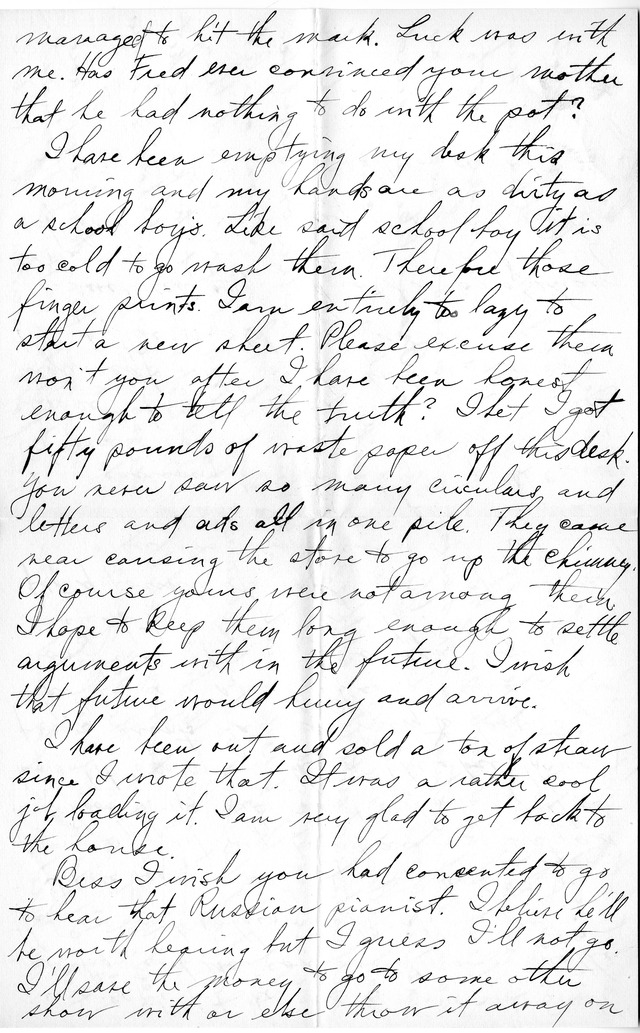 managed to hit the mark. Luck was with
me. Has Fred ever convinced your mother
that he had nothing to do with the pot?
I have been emptying my desk this
morning and my hands are as dirty as
a school boy's. Like said school boy it is
too cold to go wash them. Therefore those
finger prints. I am entirely too lazy to
start a new sheet. Please excuse them
won't you after I have been honest
enough to tell the truth? I bet I got
fifty pounds of waste paper off this desk.
You never saw so many circulars and
letters and ads all in one pile. They came
near causing the stove to go up the chimney.
Of course yours were not among them.
I hope to keep them long enough to settle
arguments with in the future. I wish
that future would hurry and arrive.
I have been out and sold a ton of straw
since I wrote that. It was a rather cool
job loading it. I am very glad to get back to
the house.
Bess I wish you had consented to go
to hear that Russian pianist. I believe he'll
be worth hearing but I guess I'll not go.
I'll save the money to go to some other
show with or else throw it away on